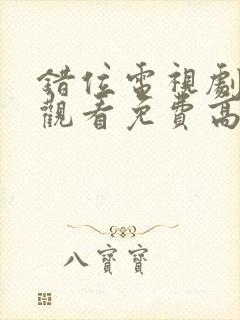 錯位電視劇
觀看免費高
八寶寶